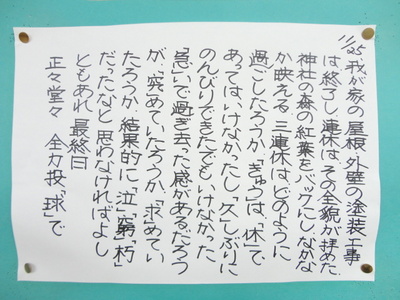 11/25 我が家の屋根、外壁の塗装工事
は終了し、連休は、その全貌が拝めた。
神社の森の紅葉をバックにし、なかな
か映える。三連休は、どのように
過ごしたろうか。「きゅう」は、「休」で
あってはいけなかったし、「久」しぶりに
のんびりできたでもいけなかった。
「急」いで過ぎ去った感がある。だろう
が、「究」めていたろうか。「求」めてい
たろうか。結果的に「泣」「窮」「朽」
だったなと思わなければよし
ともあれ、最終日
正々堂々 全力投「球」で